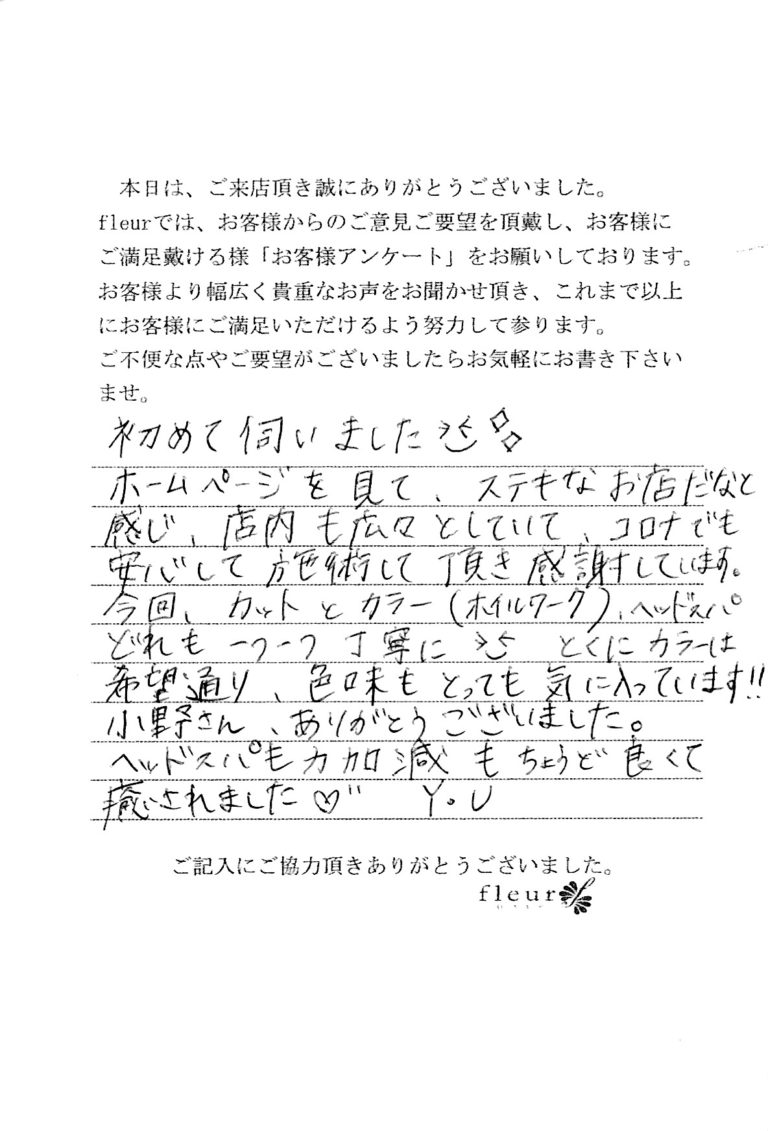 本日は、ご来店頂き誠にありがとうございました。
fleurでは、お客様からのご意見ご要望を頂戴し、お客様に
ご満足戴ける様「お客様アンケート」をお願いしております。
お客様より幅広く貴重なお声をお聞かせ頂き、これまで以上
にお客様にご満足いただけるよう努力して参ります。
ご不便な点やご要望がございましたらお気軽にお書き下さい
ませ。
初めて伺いました
ホームページを見て、ステキなお店だなと
感じ、店内も広々としていて、コロナでも
安心して施術して頂き感謝しています。
今回、カットとカラー(ホイルワーク)、ヘッドスパ
どれも一つ一つ丁寧に とくにカラーは
希望通り、色味もとっても気に入っています!!
小野さん、ありがとうございました。
ヘッドスパも力加減もちょうど良くて
癒されました♡ Y.U
ご記入にご協力頂きありがとうございました。
fleur